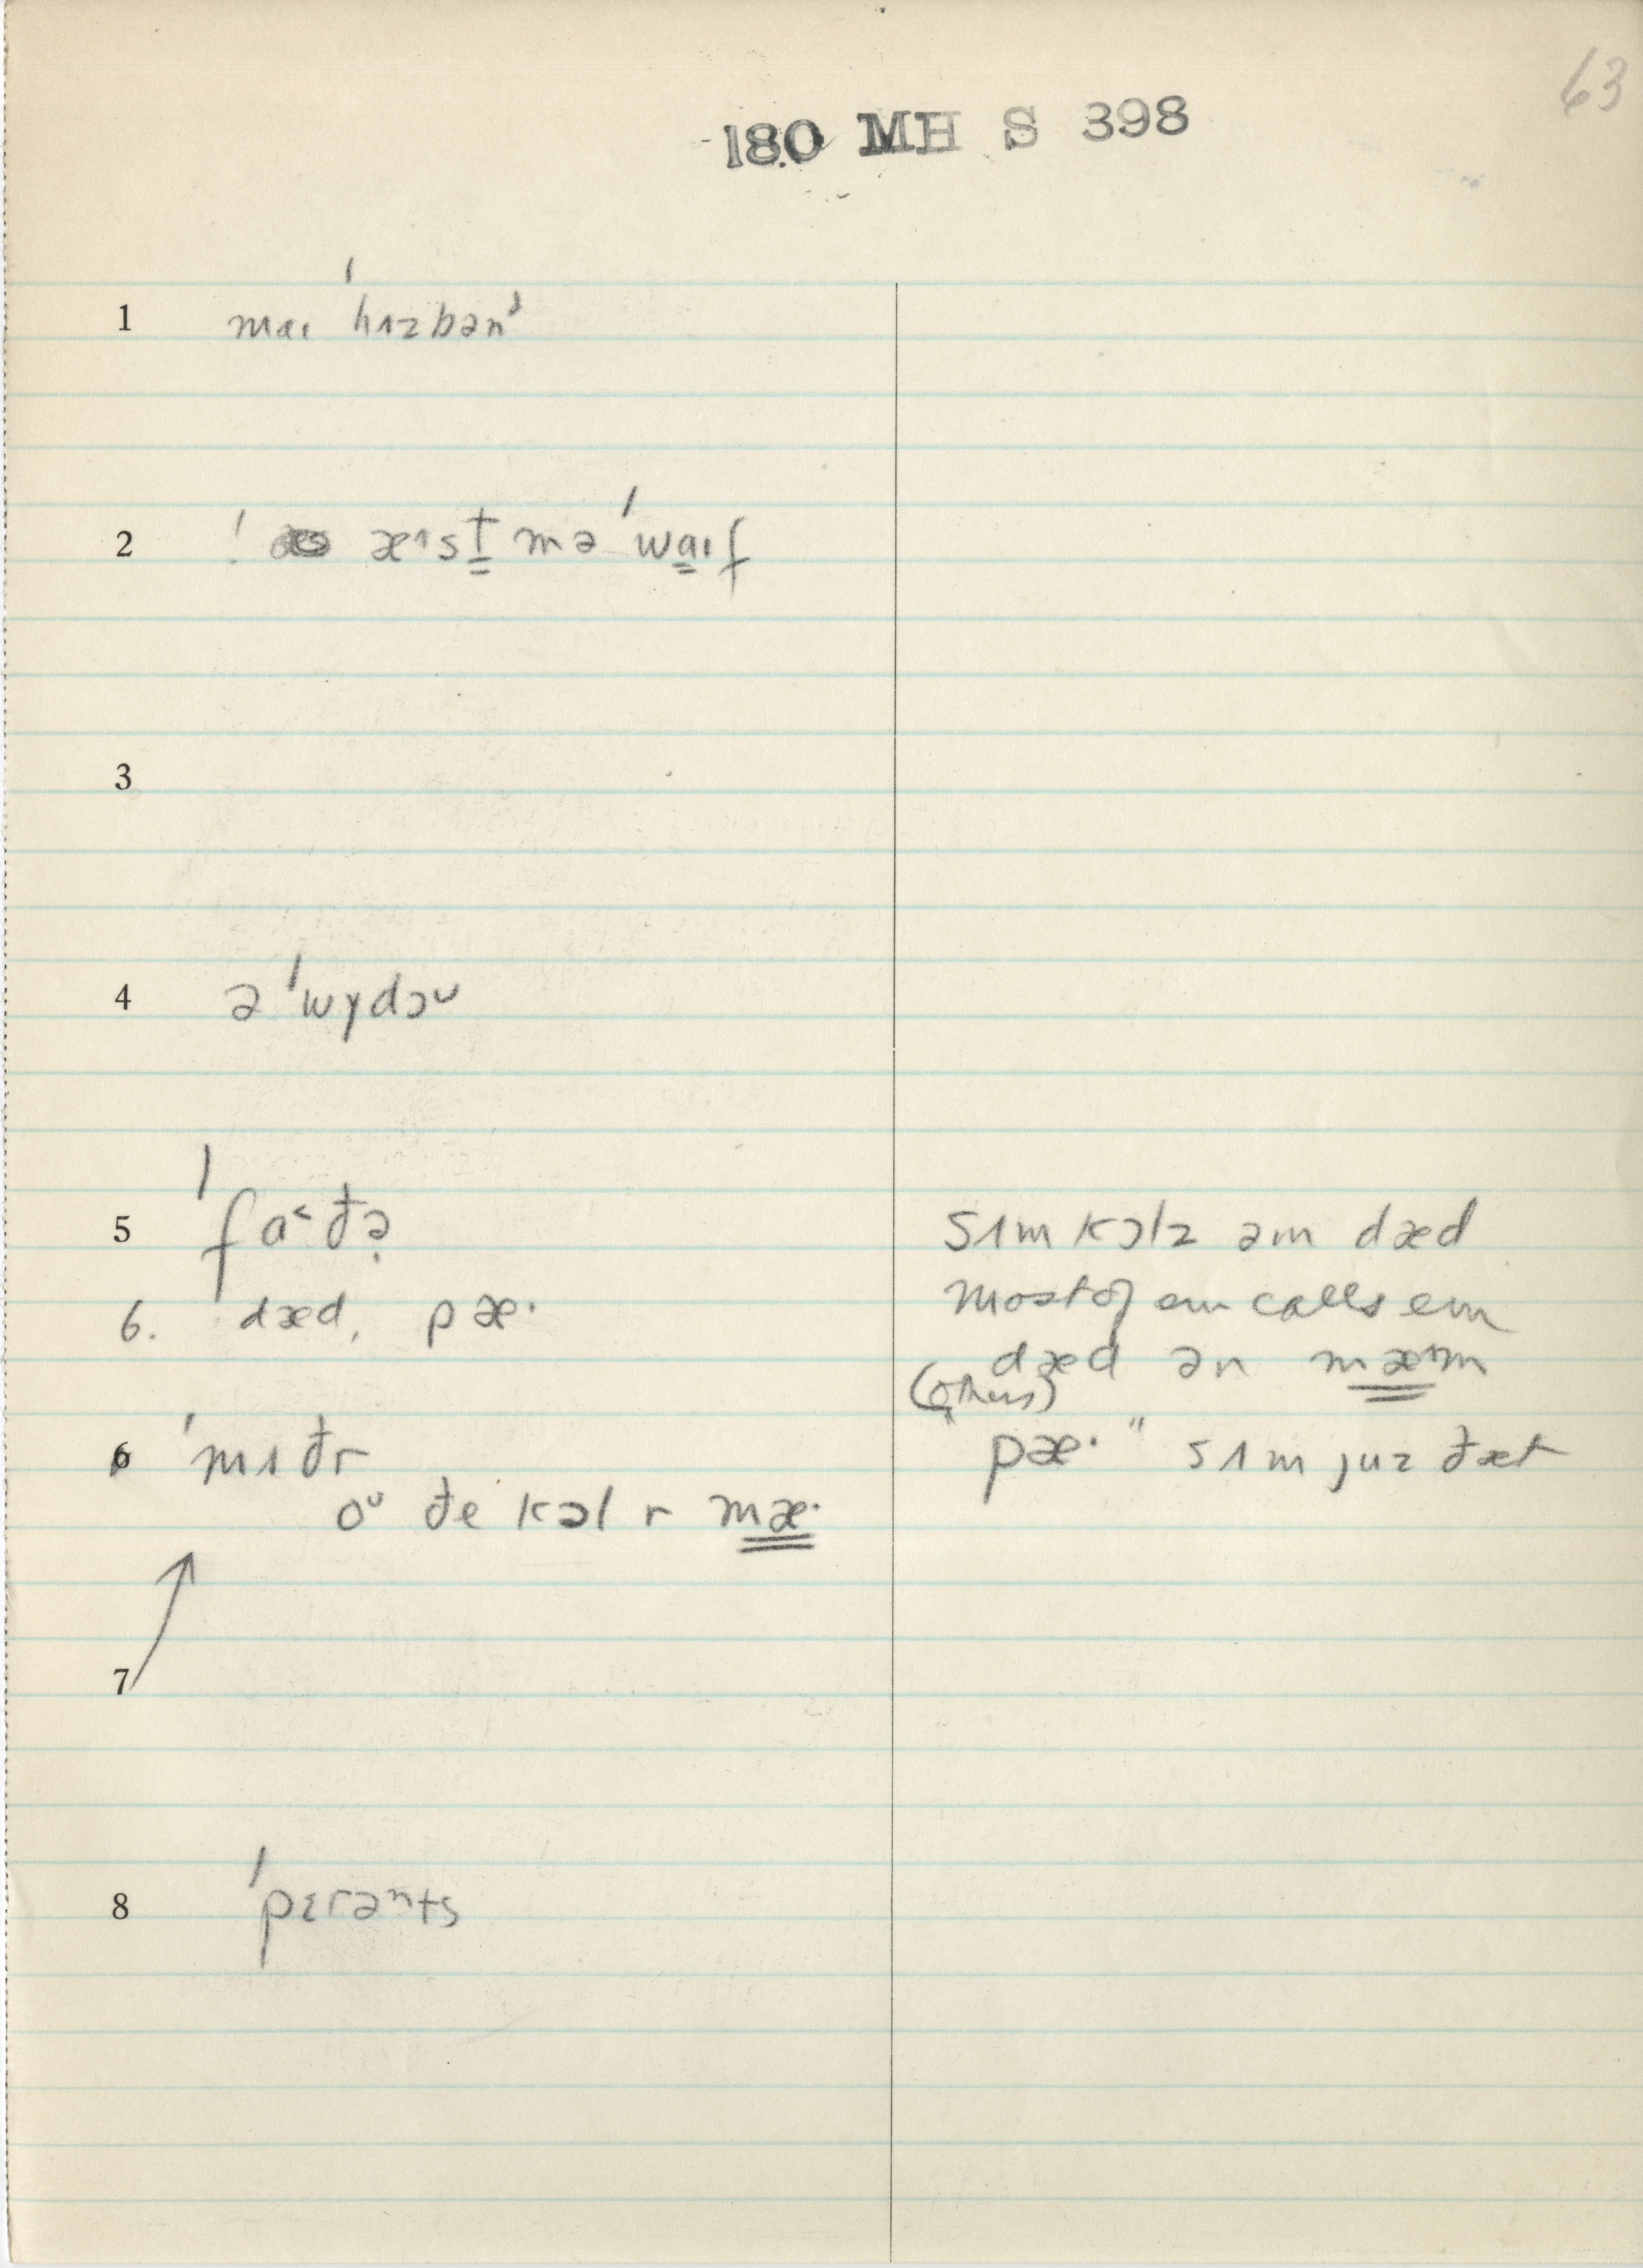 63
180 MH S 398
1 maɪ ˈhʌzbənᵈ
2 ! æˑɪst mə ˈwaɪf
3
4 ə ˈwɣdəᴜ
5 ˈfɑ˂ðə̣
6. dæd, pæ·
sʌm kɔlz əm dæd
most of em calls em
dæd ən mæᵊm
(others)
"pæ·" sʌm juz ðæt
6 ˈmʌðr
oᵁ ðe kɔl r mæ·
7
8 ˈpɛrəⁿts